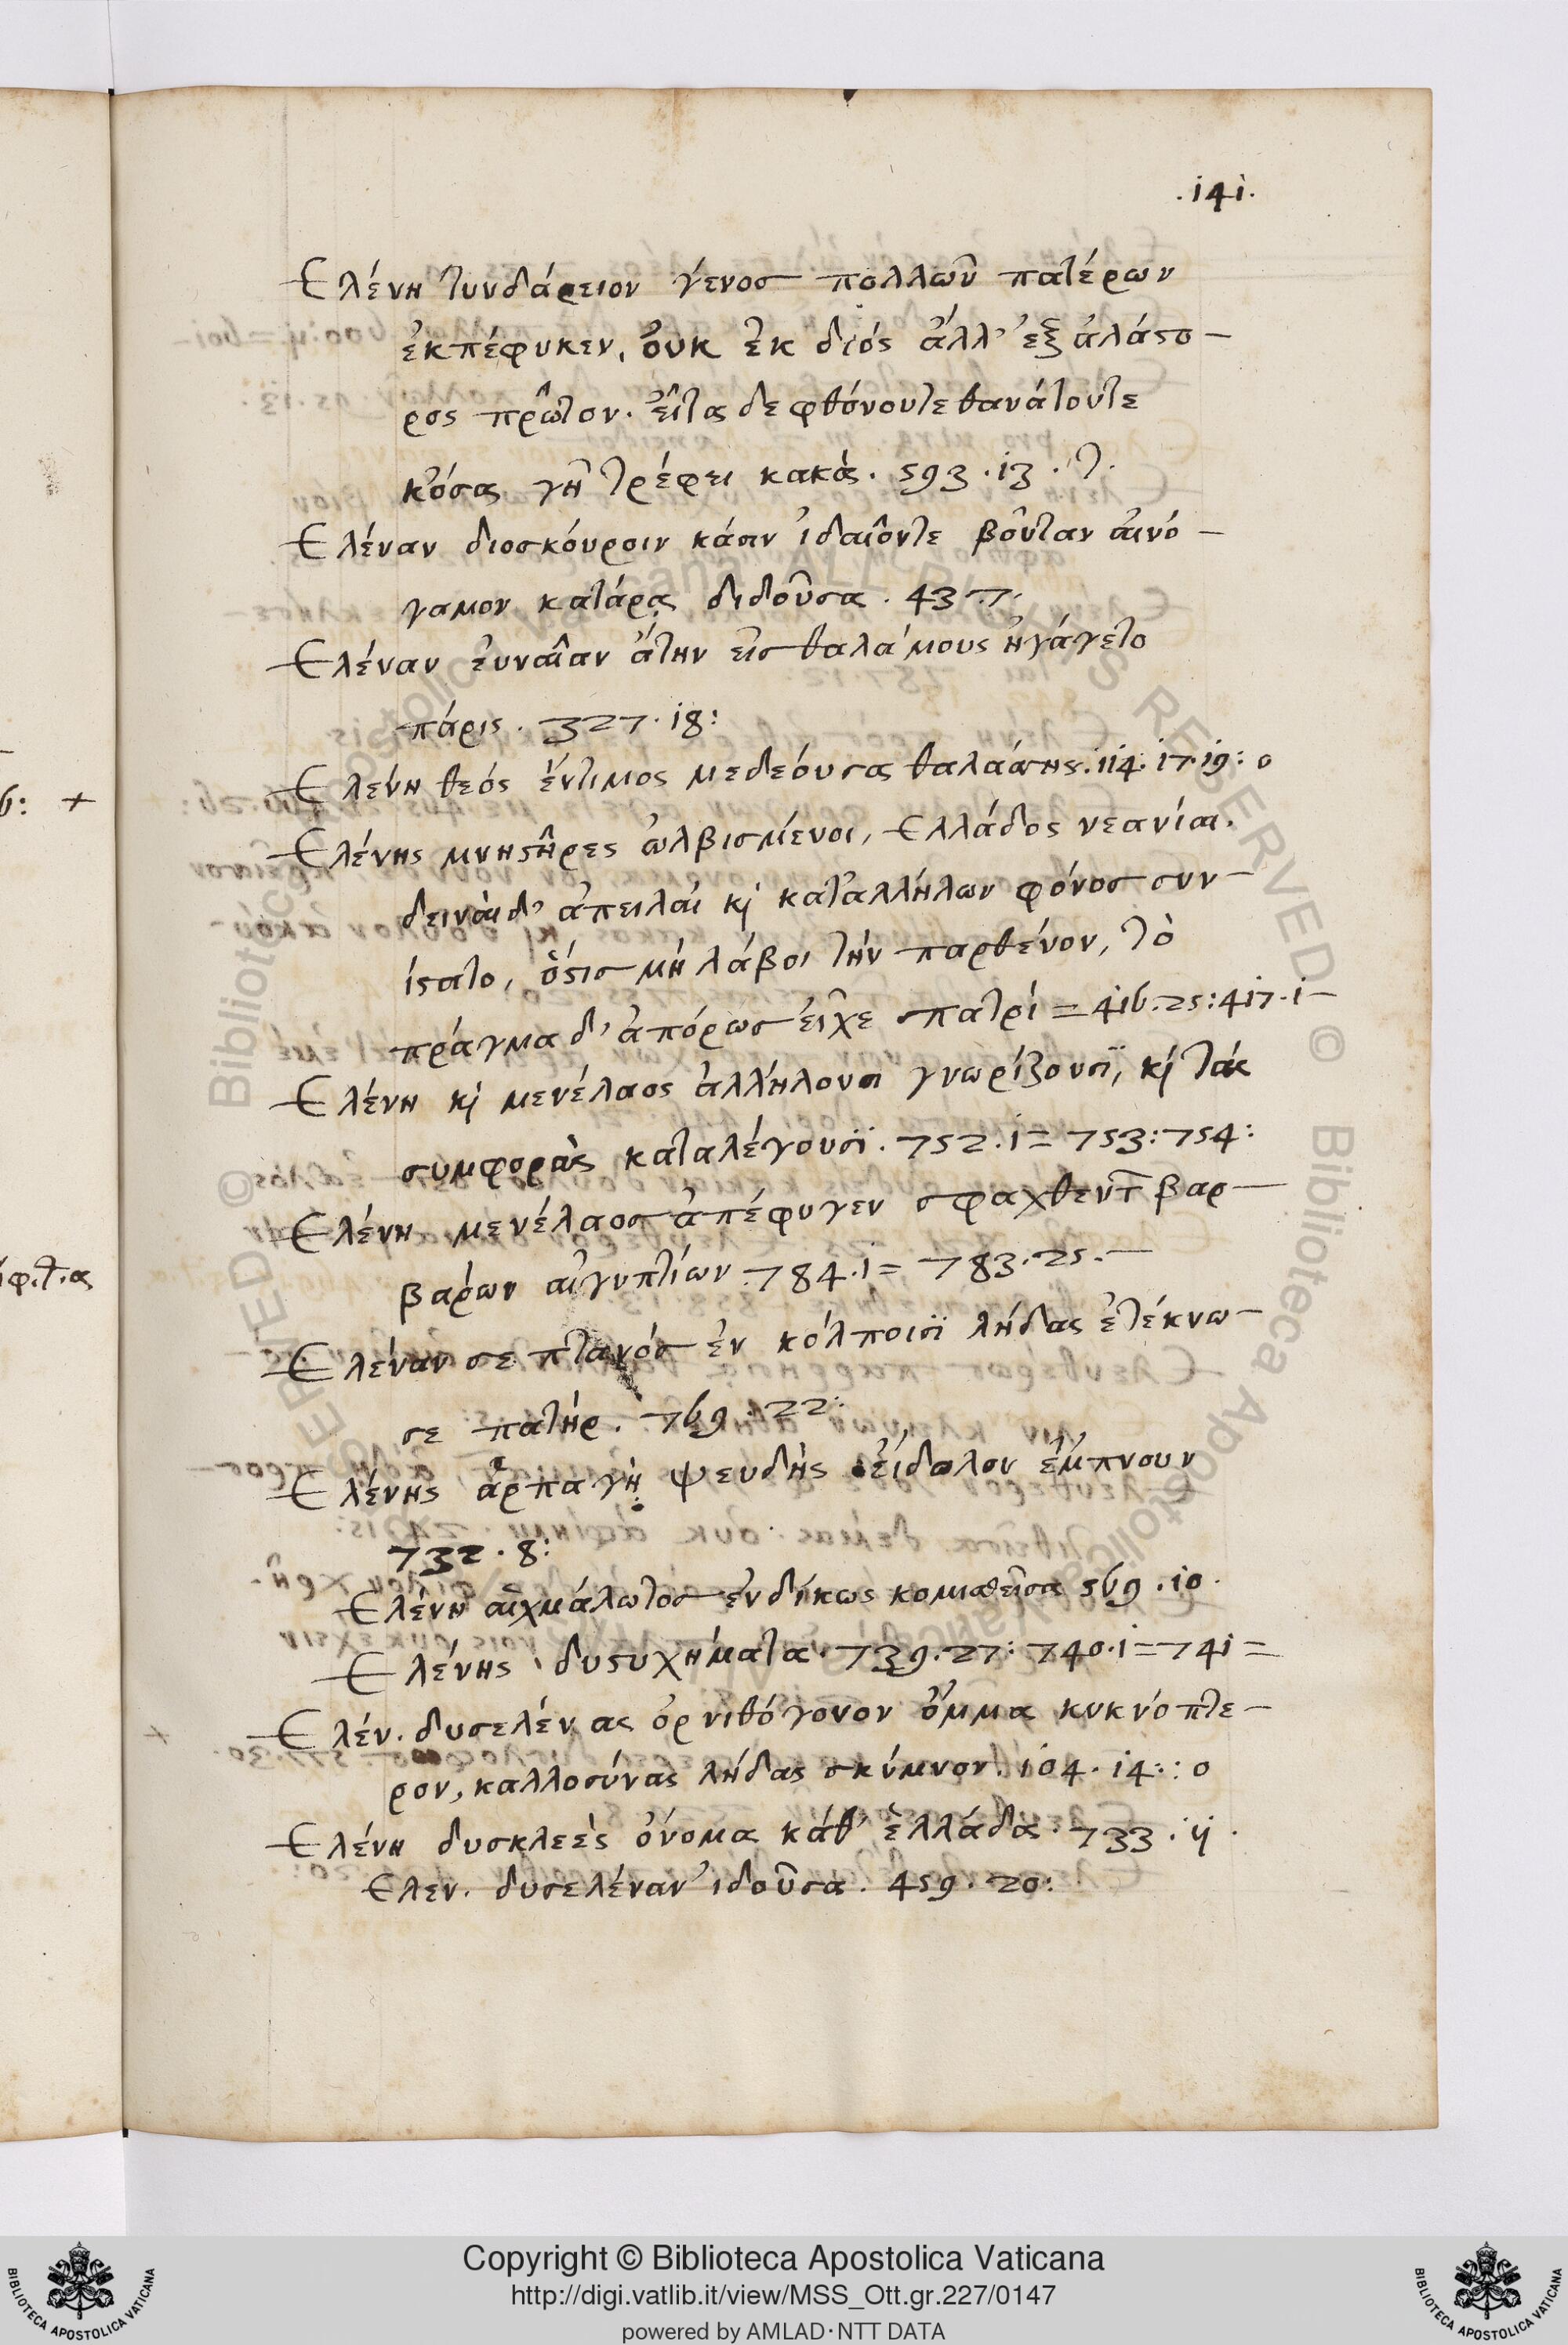 .141.
Ἑλένη τυνδάρειον γένος πολλῶν πατέρων
ἐκπέφυκεν, οὐκ ἐκ διός ἀλλ' ἐξ ἀλάστο-
ρος πρῶτον. εἶτα δε φθόνουτε θανάτουτε
κ'όσα γῆ τρέφει κακὰ. 593.13.
Ἑλέναν διοσκόυροιν κάσιν ἰδαῖόντε βούταν ἀινό-
γαμον κατάρᾳ διδοῦσα. 437.
Ἑλέναν ἐυναῖαν ἄτην εἰσ θαλάμους ἠγάγετο
πάρις. 327.18:
Ἑλένη θεός ἔντιμος μεδεόυσα θαλάσσης. 114. 17.19: ο
Ἑλένης μνηστῆρες ὠλβισμένοι, Ἑλλάδος νεανίαι.
δειναὶ δ' ἀπειλαὶ κ̀ κατ'αλλήλων φόνος συν-
ίστατο, ὅστις μὴ λάβοι τὴν παρθένον, τὸ
πρᾶγμα δ' ἀπόρως εἶχε πατρί = 416.25: 417.1-
Ἑλένη κ̀ μενέλαος ἀλλήλους γνωρίζουσϊ, κ̀ τὰς
συμφορὰς καταλέγουσϊ. 752.1= 753: 754:
Ἑλένη μενέλαος ἀπέφυγεν σφαχθεντ̄ βαρ-
βαρ́ων αἰγυπτίων. 784.1= 783.25.-
Ἑλέναν σε πτανός ἐν κόλποισϊ λήδας ἐτέκνω-
σε πατήρ. 769. 22:
Ἑλένης ἁρπαγὴ ψευδὴς εἴδωλον ἔμπνουν
732.8:
Ἑλένη αἰχμάλωτος ἐνδίκως κομισθεῖσα 569.10.
Ἑλένης δυστυχήματα. 739.27: 740.1=741=
Ἑλέν. δυσελένας ὀρνιθόγονον ὄμμα κυκνόπτε-
ρον, καλλοσύνας λήδας σκύμνον. 104. 14: : ο
Ἑλένη δυσκλεὲς ὄνομα κάθ' ἑλλάδα. 733. ij.
Ἑλεν. δυσελέναν ἰδοῦσα. 459. 20:
6: +
ίφ.τ.α
+
Copyright © Biblioteca Apostolica Vaticana
http://digi.vatlib.it/view/MSS_Ott.gr.227/0147
powered by AMLAD·NTT DATA
BIBLIOTECA APOSTOLICA VATICANA
BIBLIOTECA APOSTOLICA VATICANA